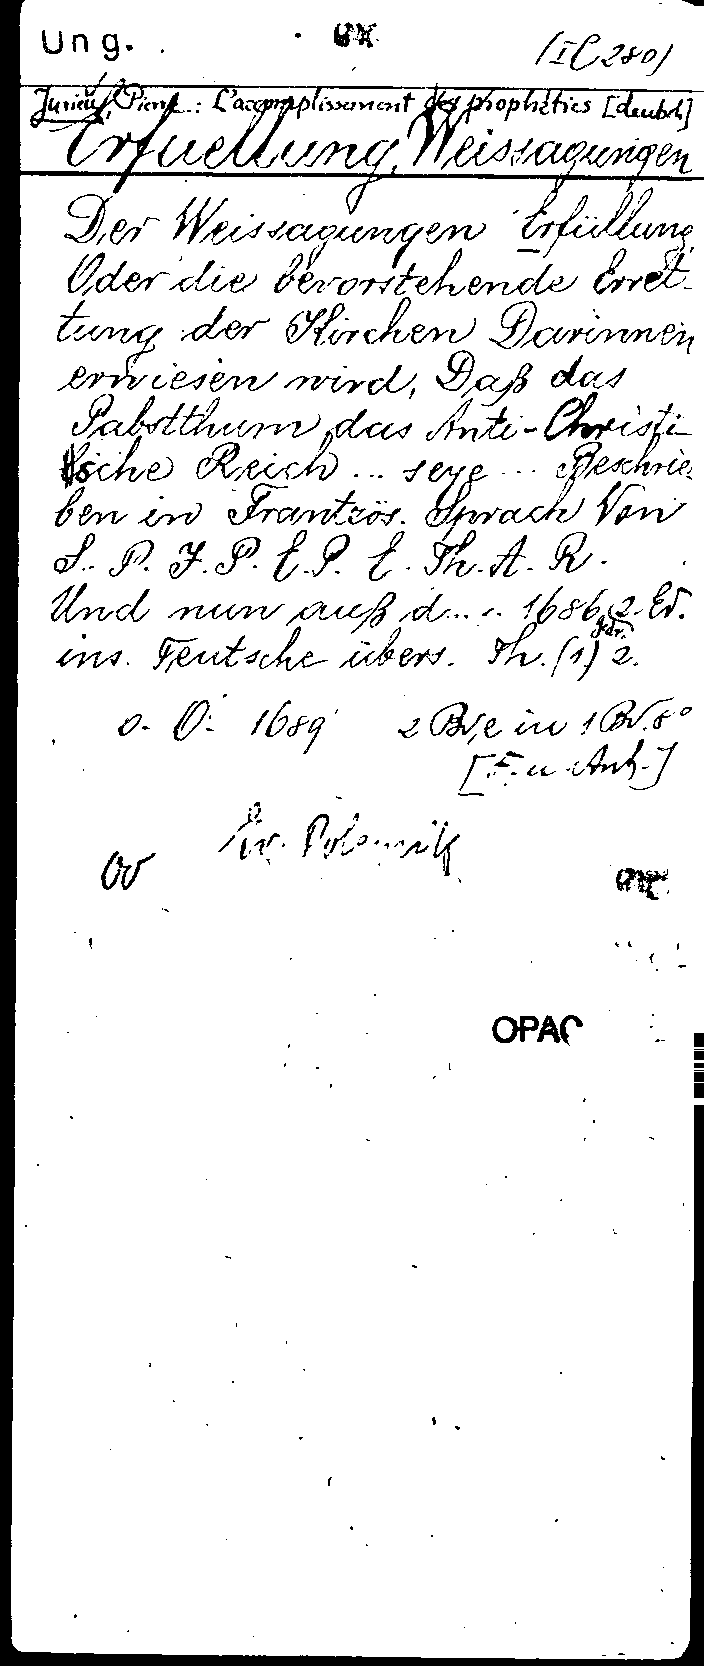 Ung.
(IC 280)
Jurieu, Pierre: L'accomplissement des prophéties [deutsch]
Erfuellung, Weissagungen
Der Weissagungen Erfüllung
Oder die bevorstehende Erret-
tung der Kirchen Darinnen
erwiesen wird, Daß das
Pabstthum das Anti-Christi-
sche Reich ... seye ... Beschrie-
ben in Frantzös. Sprach Von
S. P. J. P. E. P. E. Th. A. R.
Und nun auß d. ... 1686 gdr. 2. Ed.
ins Teutsche übers. Th. (1) 2.
o. O. 1689 2 Bde in 1 Bd. 8°
[F. u. Anh.]
Polemik
OPAC